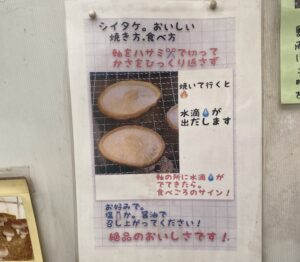 シイタケ。おいしい
焼き方、食べ方
軸をハサミ✂で切って
かさをひっくり返さず
焼いて行くと
🔥
水滴💧が
出だします
軸の所に水滴💧が
でてきたら。
食べごろのサイン！
お好みで。
塩🧂か。醤油で
召し上がってください！
絶品のおいしさです！